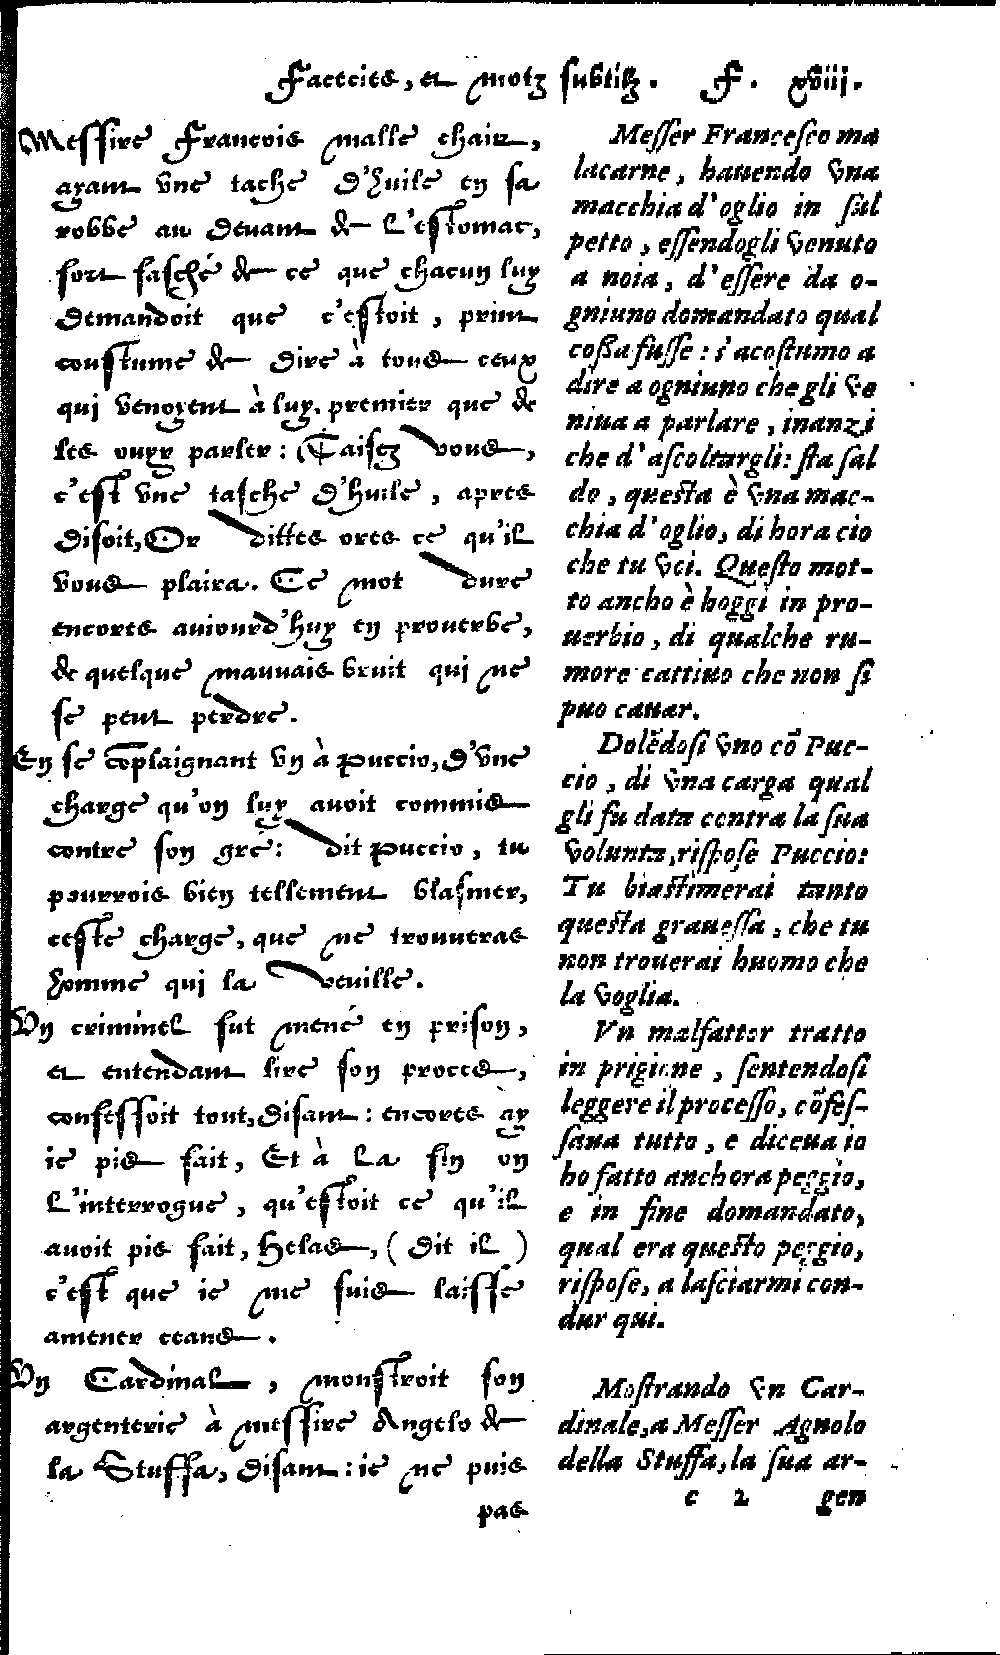 Facecies, et motz subtilz. F. xviij.
Messire Francois malle chair,
ayant vne tache d'huile en sa
robbe au deuant de l'estomac,
fort fasché de ce que chacun luy
demandoit que c'estoit, print
coustume de dire à tous ceux
qui venoyent à luy, premier que de
les ouyr parler: Taisez vous,
c'est vne tasche d'huile, apres
disoit, Or dittes ores ce qu'il
vous plaira. Ce mot dure
encores auiourd'huy en prouerbe,
de quelque mauuais bruit qui ne
se peut perdre.
En se cõplaignant vn à Puccio, d'vne
charge qu'on luy auoit commis
contre son gré: dit Puccio, tu
pourrois bien tellement blasmer,
ceste charge, que ne trouueras
homme qui la veuille.
Vn criminel fut mené en prison,
et entendant lire son proces,
confessoit tout, disant: encores ay
ie pis fait, Et à la fin on
l'interrogue, qu'estoit ce qu'il
auoit pis fait, Helas, (dit il)
c'est que ie me suis laisse
amener ceans.
Vn Cardinal, monstroit son
argenterie à messire Angelo de
la Stuffa, disant: ie ne puis
pas
Messer Francesco ma
lacarne, hauendo vna
macchia d'oglio in sul
petto, essendogli venuto
a noia, d'essere da o-
gniuno domandato qual
cossa fusse: s'acostumo a
dire a ogniuno che gli ve
niua a parlare, inanzi
che d'ascoltargli: sta sal
do, questa è vna mac-
chia d'oglio, di hora cio
che tu vei. Questo mot-
to ancho è hoggi in pro-
uerbio, di qualche ru-
more cattiuo che non si
puo cauar.
Dolẽdosi vno cõ Puc-
cio, di vna carga qual
gli fu data contra la sua
volunta, rispose Puccio:
Tu biastimerai tanto
questa grauessa, che tu
non trouerai huomo che
la voglia.
Vn malfattor tratto
in prigione, sentendosi
leggere il processo, cõfes-
saua tutto, e diceua io
ho fatto anchora peggio,
e in fine domandato,
qual era questo peggio,
rispose, a lasciarmi con-
dur qui.
Mostrando vn Car-
dinale, a Messer Agnolo
della Stuffa, la sua ar-
c 2 gen